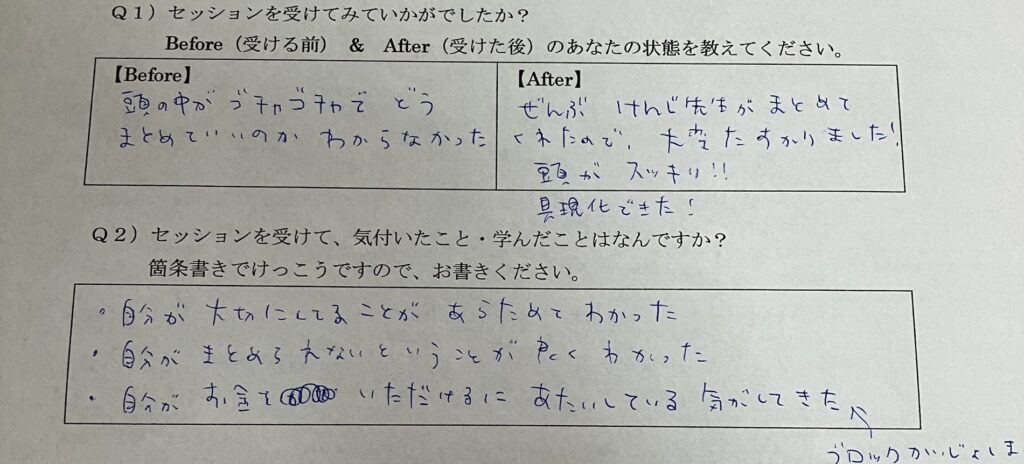 Q1）セッションを受けてみていかがでしたか？
Before（受ける前） ＆ After（受けた後）のあなたの状態を教えてください。
【Before】
頭の中が ゴチャゴチャで どう
まとめていいのか わからなかった
【After】
ぜんぶ けんじ先生が まとめて
くれたので、大変 たすかりました！
頭が スッキリ!!
具現化できた！
Q2）セッションを受けて、気付いたこと・学んだことはなんですか？
箇条書きでけっこうですので、お書きください。
・自分が 大切にしてることが あらためて わかった
・自分が まとめられないということが 良く わかった
・自分が お金を いただけるに あたいしている 気がしてきた
ブロックかいじょしま